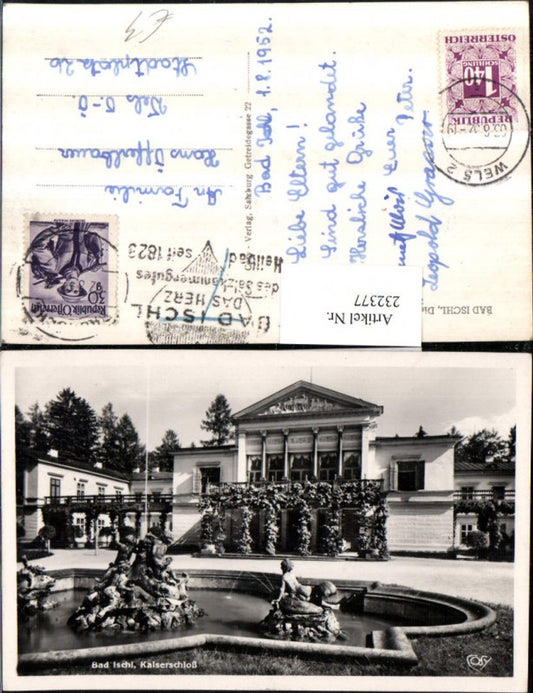 €4
Bad Ischl, 1.8.1952.
Liebe Eltern!
Sind gut gelandet.
Herzliche Grüße
Euer Peter.
Leopold
An Familie
Hans
Wels O.-Ö.
Stadtplatz 26
Verlag, Salzburg Getreidegasse 22
BAD ISCHL,
REPUBLIK
1.40
SCHILLING
ÖSTERREICH
WELS 2
30
Republik Österreich
BAD ISCHL
DAS HERZ
des Salzkammergutes
Heilbad
seit 1823
Artikel Nr.
232377
Bad Ischl, Kaiserschloß